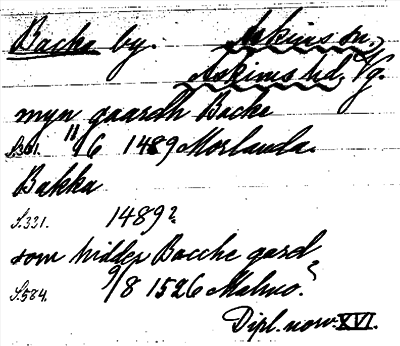 Backa by. Askims sn.,
Askims hd, Vg.
myn gaardh Backe
S.301. 11/6 1489 Morlanda.
Bakka
S.331. 1489?
som hilder Bacche gard
S.584. 9/8 1526 Malmö?
Dipl. norv. XVI.